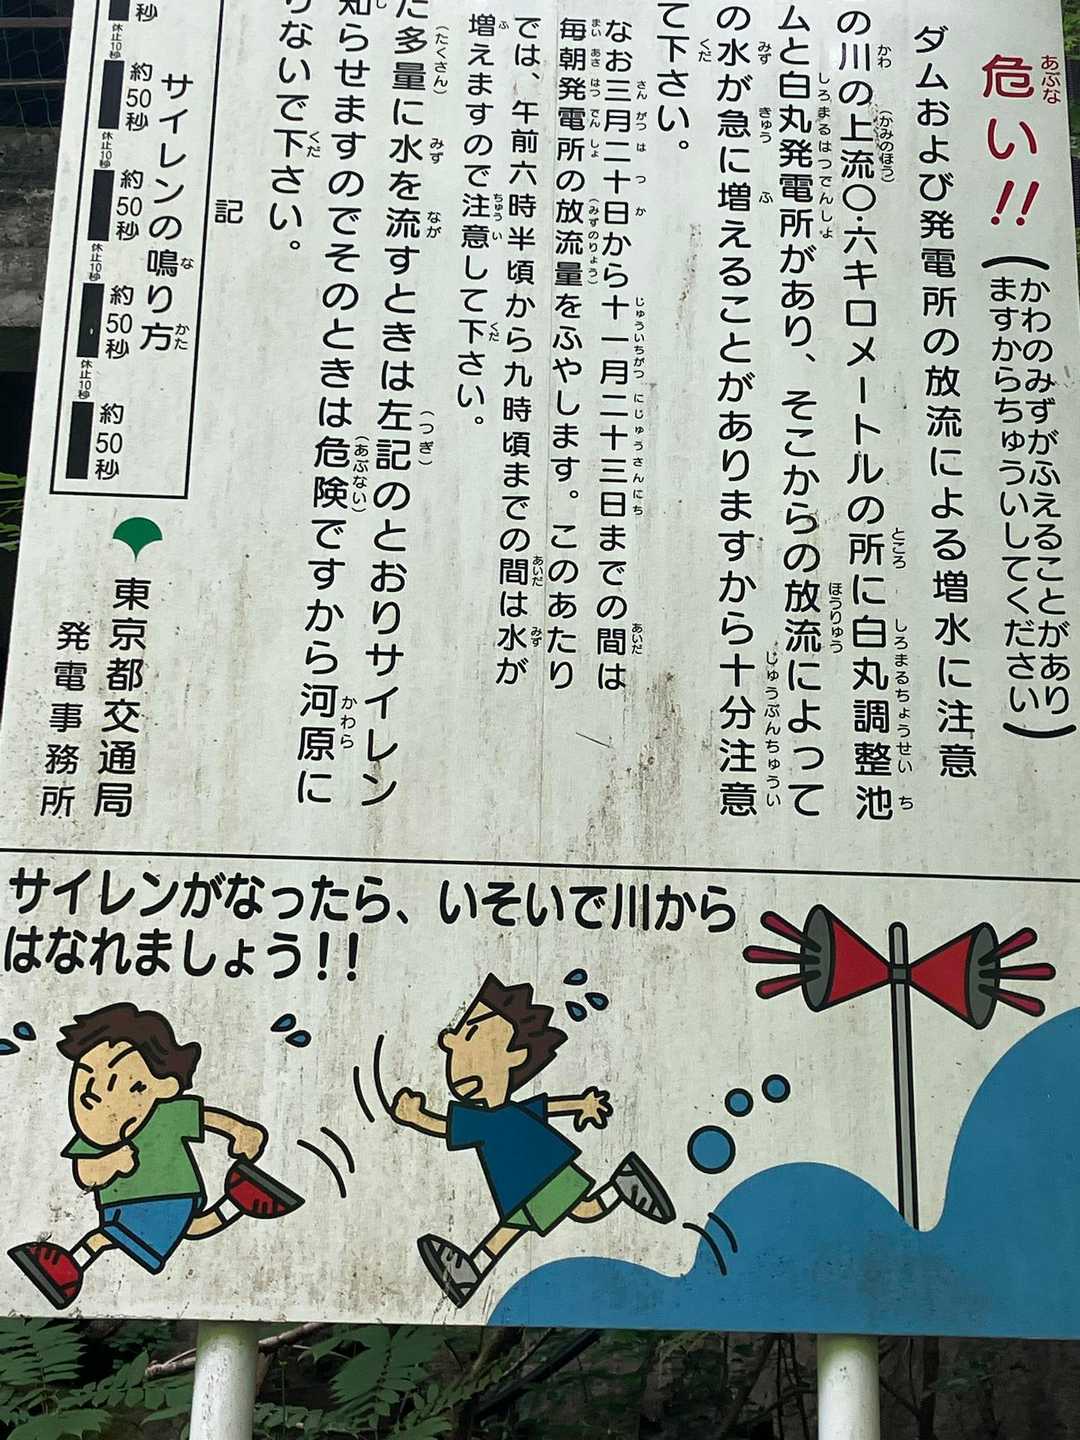 危い!!
(かわのみずがふえることがあり
ますからちゅういしてください)
ダムおよび発電所の放流による増水に注意
の川の上流〇・六キロメートルの所に白丸調整池
ムと白丸発電所があり、そこからの放流によって
の水が急に増えることがありますから十分注意
て下さい。
なお三月二十日から十一月二十三日までの間は
毎朝発電所の放流量をふやします。このあたり
では、午前六時半頃から九時頃までの間は水が
増えますので注意して下さい。
た多量に水を流すときは左記のとおりサイレン
知らせますのでそのときは危険ですから河原に
りないで下さい。
記
サイレンの鳴り方
秒
休止10秒
約50秒
休止10秒
約50秒
休止10秒
約50秒
休止10秒
約50秒
東京都交通局
発電事務所
サイレンがなったら、いそいで川から
はなれましょう!!